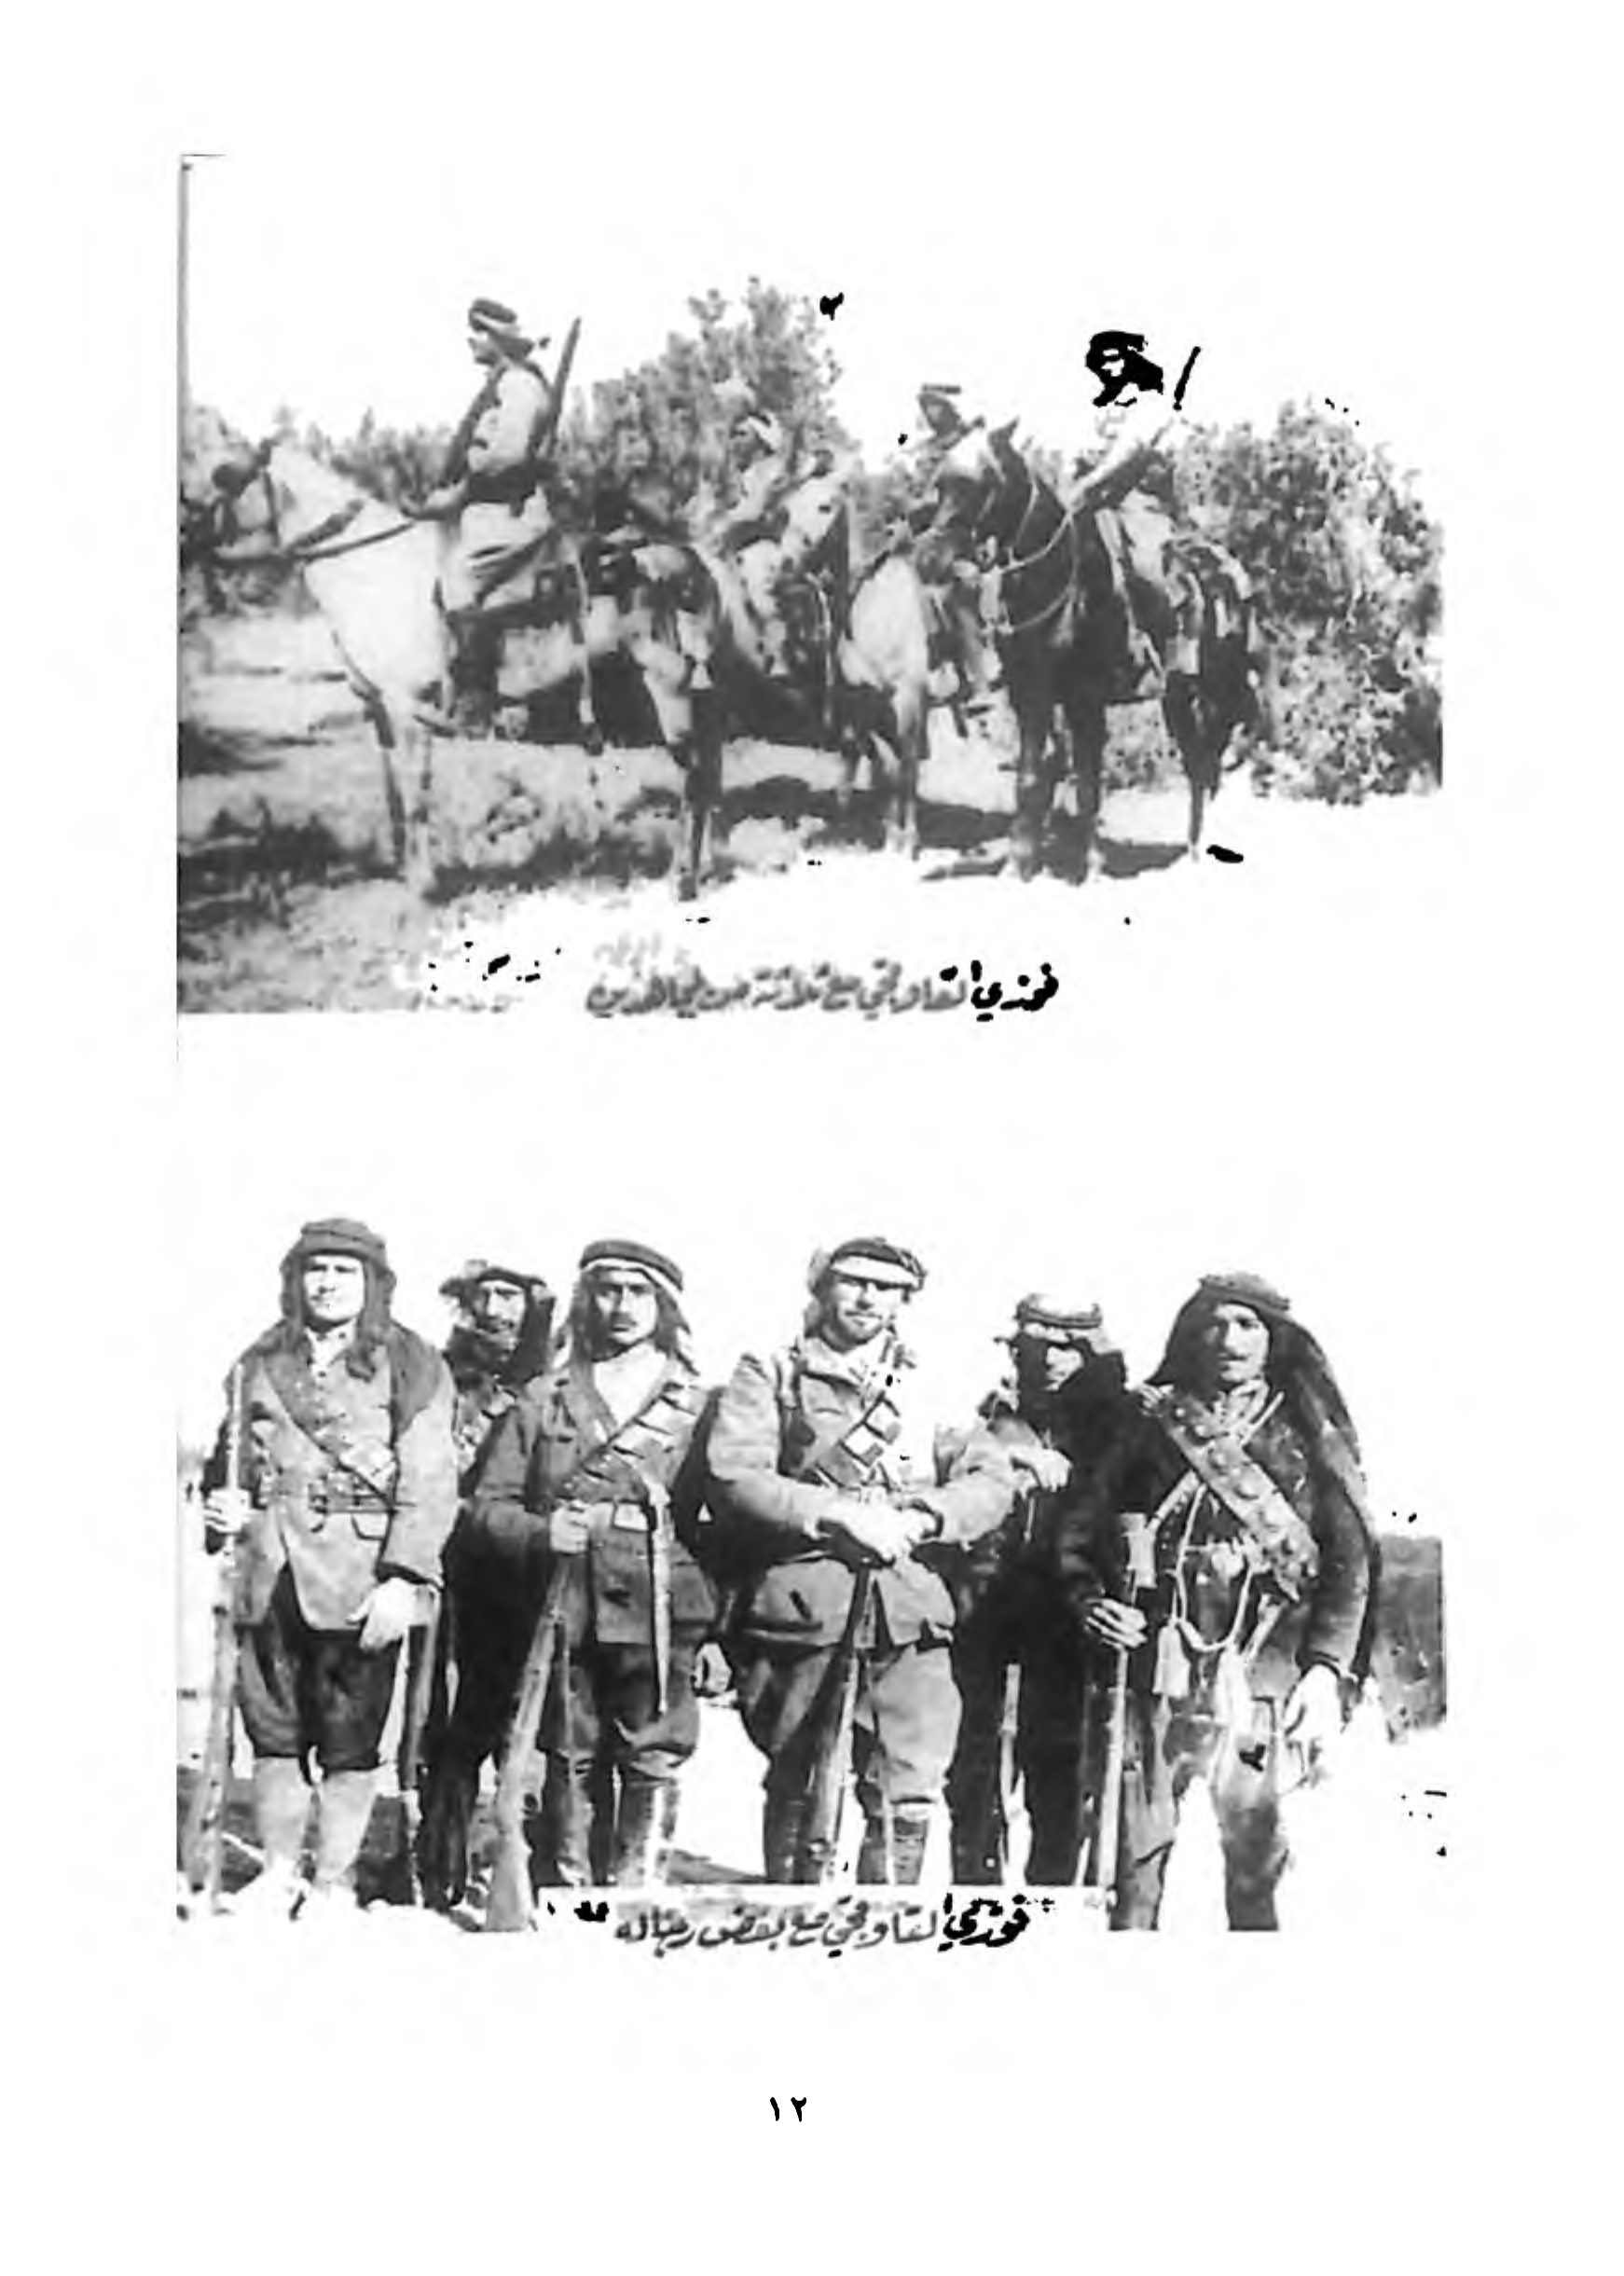 فوزي القاوقجي مع ثلاثة من المجاهدين
فوزي القاوقجي مع بعض رجاله
١٢